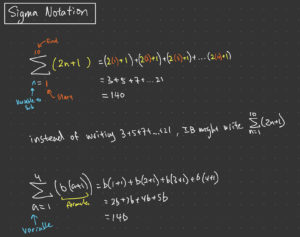 Sigma Notation
End
10
Σ (2n+1) = (2(1)+1)+(2(2)+1)+(2(3)+1)+...(2(10)+1)
n = 1 = 3+5+7+...21
Variable to Sub
Start
= 140
instead of writing 3+5+7+...21, IB might write 10 Σ n=1 (2n+1)
4
Σ (b(a+1)) = b(1+1)+b(2+1)+b(3+1)+b(4+1)
a = 1
formula
= 2b+3b+4b+5b
Variable
= 14b